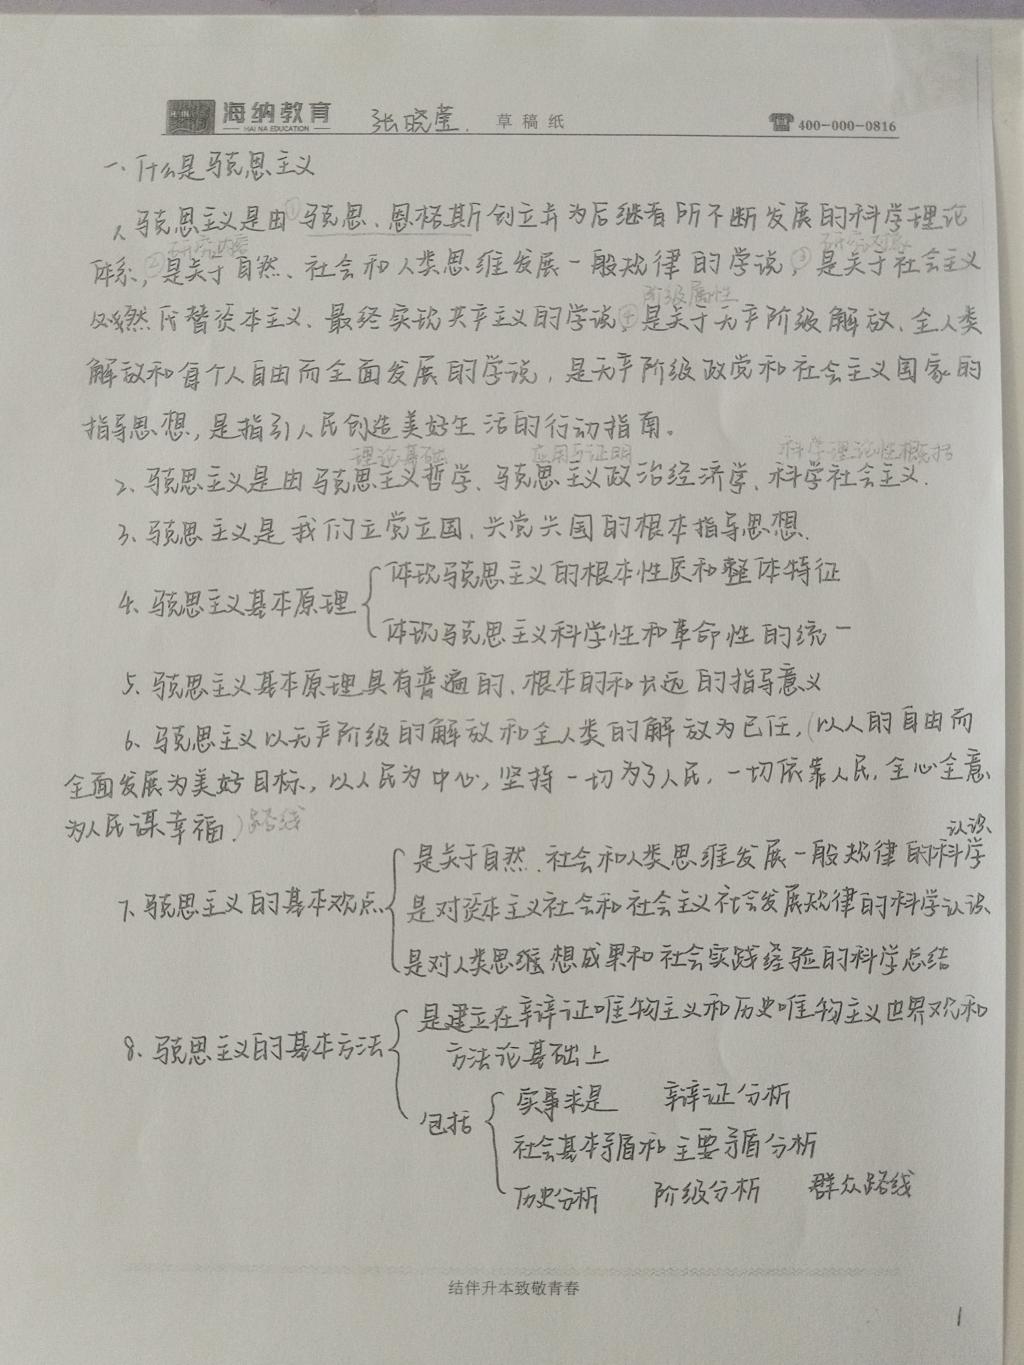 海纳教育
HAI NA EDUCATION
张晓莹.
草稿纸
400-000-0816
一、什么是马克思主义
1、马克思主义是由①马克思、恩格斯创立并为后继者所不断发展的科学理论
研究内容 研究对象
体系,②是关于自然、社会和人类思维发展一般规律的学说,③是关于社会主义
阶级属性
必然代替资本主义、最终实现共产主义的学说,④是关于无产阶级解放、全人类
解放和每个人自由而全面发展的学说,是无产阶级政党和社会主义国家的
指导思想,是指引人民创造美好生活的行动指南。
理论基础 应用与证明 科学理论性概括
2、马克思主义是由马克思主义哲学、马克思主义政治经济学、科学社会主义.
3、马克思主义是我们立党立国、兴党兴国的根本指导思想.
4、马克思主义基本原理
体现马克思主义的根本性质和整体特征
体现马克思主义科学性和革命性的统一
5、马克思主义基本原理具有普遍的、根本的和长远的指导意义
6、马克思主义以无产阶级的解放和全人类的解放为己任,(以人的自由而
全面发展为美好目标,以人民为中心,坚持一切为了人民,一切依靠人民,全心全意
为人民谋幸福.)路线
7、马克思主义的基本观点
是关于自然、社会和人类思维发展一般规律的科学认识
是对资本主义社会和社会主义社会发展规律的科学认识
是对人类思维想成果和社会实践经验的科学总结
8、马克思主义的基本方法
是建立在辩证唯物主义和历史唯物主义世界观和
方法论基础上
包括
实事求是 辩证分析
社会基本矛盾和主要矛盾分析
历史分析 阶级分析 群众路线
结伴升本致敬青春
1